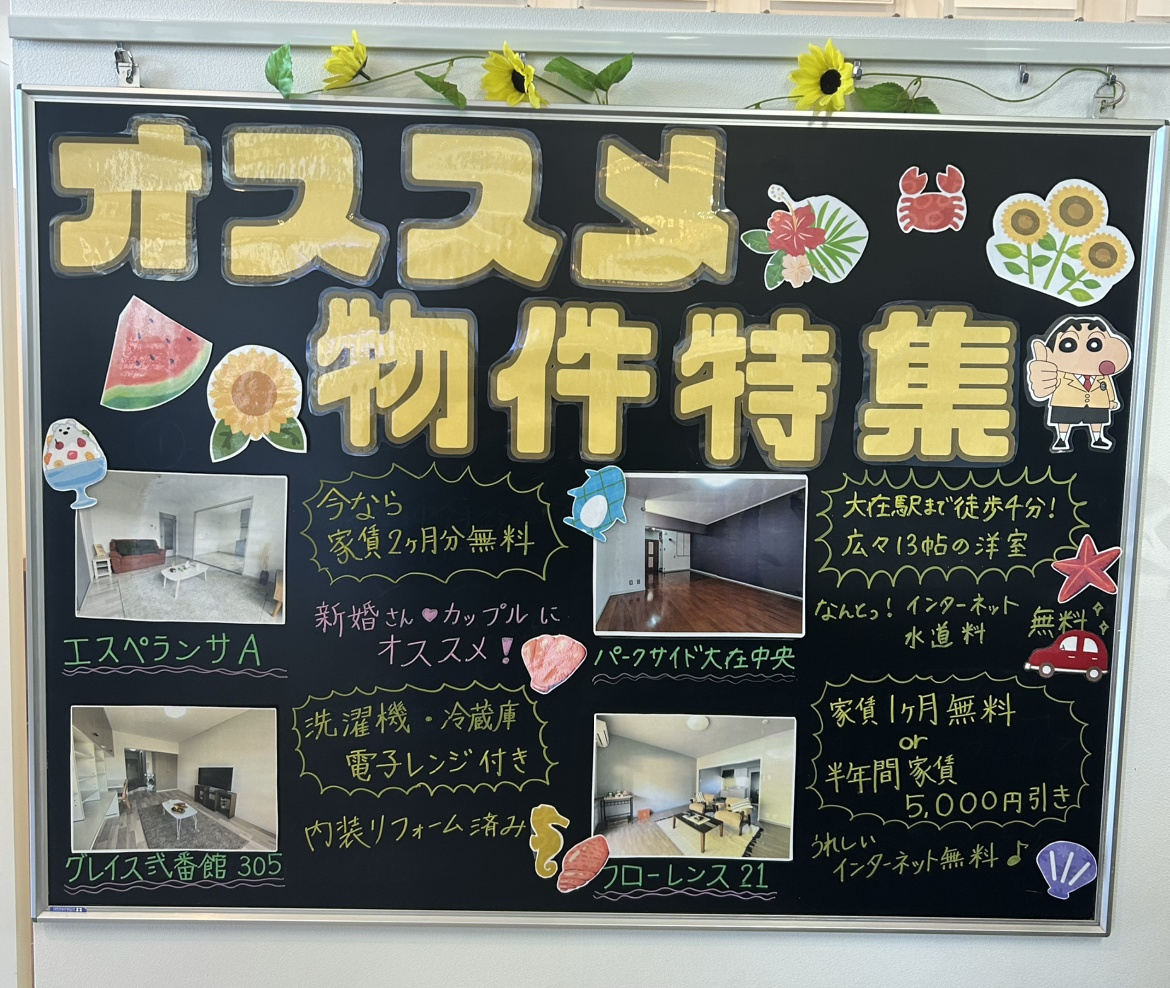 オススメ
物件特集
今なら
家賃2ヶ月分無料
新婚さん♥カップルに
オススメ!
エスペランサA
大在駅まで徒歩4分!
広々13帖の洋室
なんとっ!インターネット
水道料
無料
パークサイド大在中央
洗濯機・冷蔵庫
電子レンジ付き
内装リフォーム済み
グレイス弐番館 305
家賃1ヶ月無料
or
半年間家賃
5,000円引き
うれしい
インターネット無料♪
フローレンス 21